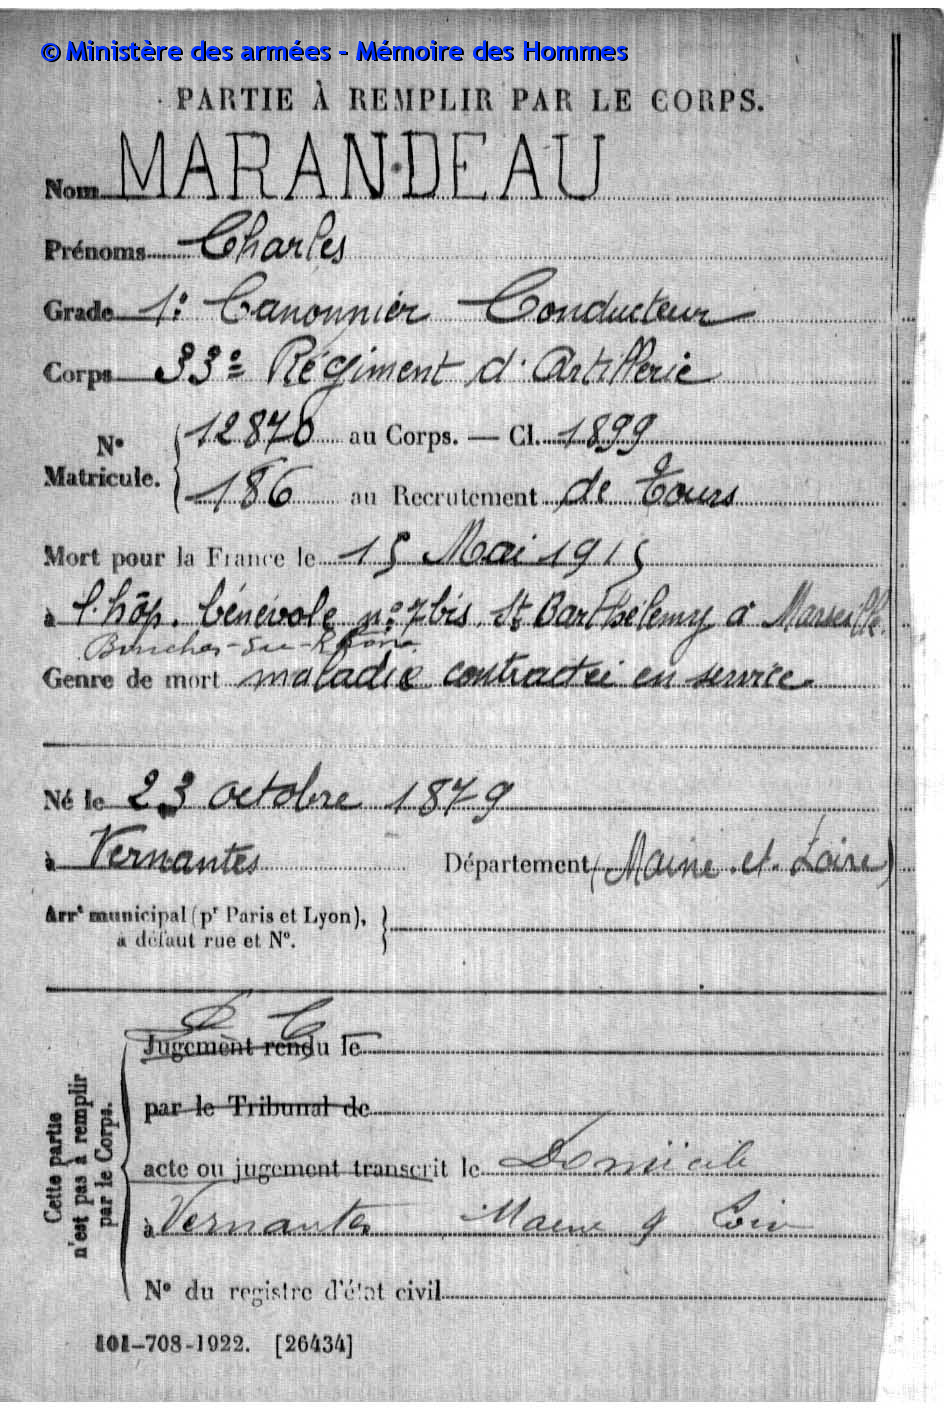 © Ministère des armées - Mémoire des Hommes
PARTIE À REMPLIR PAR LE CORPS.
Nom MARANDEAU
Prénoms Charles
Grade 1º Canonnier Conducteur
Corps 33e Régiment d'Artillerie
N° Matricule. 12870 au Corps. — Cl. 1899
186 au Recrutement de Tours
Mort pour la France le 15 Mai 1915
à l'hôp. bénévole nº 7bis St Barthélemy à Marseille.
Bouches-du-Rhône.
Genre de mort maladie contractée en service.
Né le 23 octobre 1879
à Vernantes Département (Maine et Loire)
Arrt municipal (pr Paris et Lyon),
à défaut rue et N°.
Cette partie
n'est pas à remplir
par le Corps.
Jugement rendu le
par le Tribunal de
acte ou jugement transcrit le Domicile
à Vernantes Maine & Loire
N° du registre d'état civil
101-708-1922. [26434]